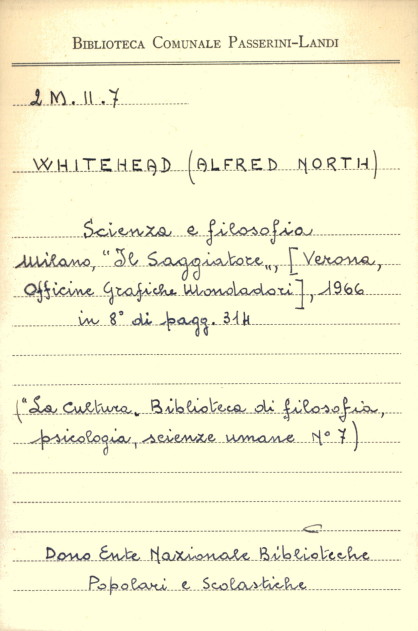 BIBLIOTECA COMUNALE PASSERINI-LANDI
2 M. II. 7
WHITEHEAD (ALFRED NORTH)
Scienza e filosofia
Milano, "Il Saggiatore", [Verona,
Officine Grafiche Mondadori], 1966
in 8° di pagg. 314
("La cultura. Biblioteca di filosofia,
psicologia, scienze umane N° 7)
Dono Ente Nazionale Biblioteche
Popolari e Scolastiche